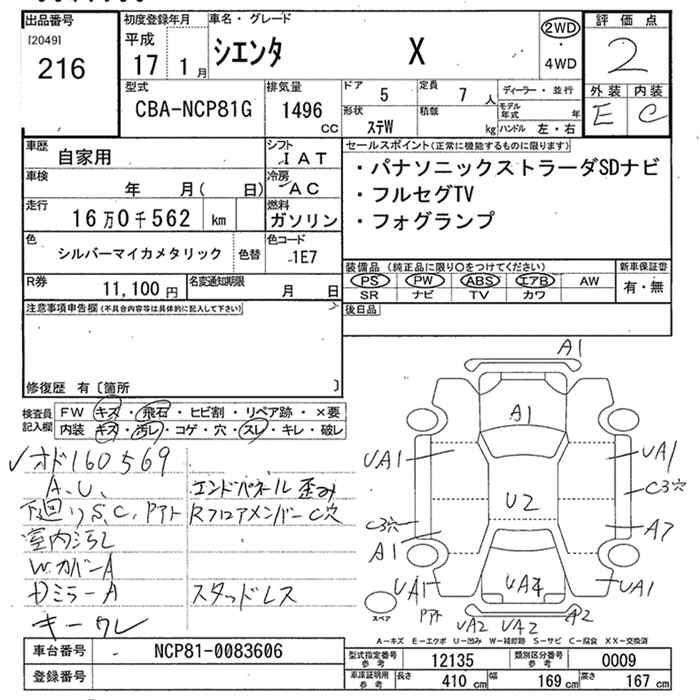 出品番号 初度登録年月 車名・グレード 2WD 評価点
[2049] 平成 シエンタ X ・ 2
216 17 1月 4WD 外装 内装
型式 排気量 ドア 5 定員 7人 ディーラー・並行 E C
CBA-NCP81G 1496cc 形状 ステW 積載 kg モデル年式 年 ハンドル 左・右
車歴 自家用 シフト IAT セールスポイント(正常に機能するものに限ります)
車検 年 月( 日) 冷房 AC ・パナソニックストラーダSDナビ
走行 16万0千562 km 燃料 ガソリン ・フルセグTV
・フォグランプ
色 シルバーマイカメタリック 色替 色コード 1E7
R券 11,100円 名変通知期限 月 日 装備品(純正品に限り○をつけてください) 新車保証書
PS PW ABS エアB AW 有・無
SR ナビ TV カワ
注意事項申告欄(不具合内容等は具体的に記入して下さい) 後日品
修復歴 有〔箇所 〕
検査員記入欄 FW キズ・飛石・ヒビ割・リペア跡・×要
内装 キズ・汚レ・コゲ・穴・スレ・キレ・破レ
✓オド160569
A、U、 エンドパネル歪み
下廻りS、C、Pアト RフロアメンバーC穴
室内汚レ
W.カバーA
DミラーA スタッドレス
キーワレ
A1
A1
UA1 UA1
C3穴
U2
C3穴 A7
A1
UA1 UA4 UA1
Pアト UA2 UA2 A2
スペア
A-キズ E-エクボ U-凹み W-補修跡 S-サビ C-腐食 XX-交換済
車台番号 NCP81-0083606 型式指定番号 参考 12135 類別区分番号 参考 0009
登録番号 車庫証明用 参考 長さ 410cm 幅 169cm 高さ 167cm